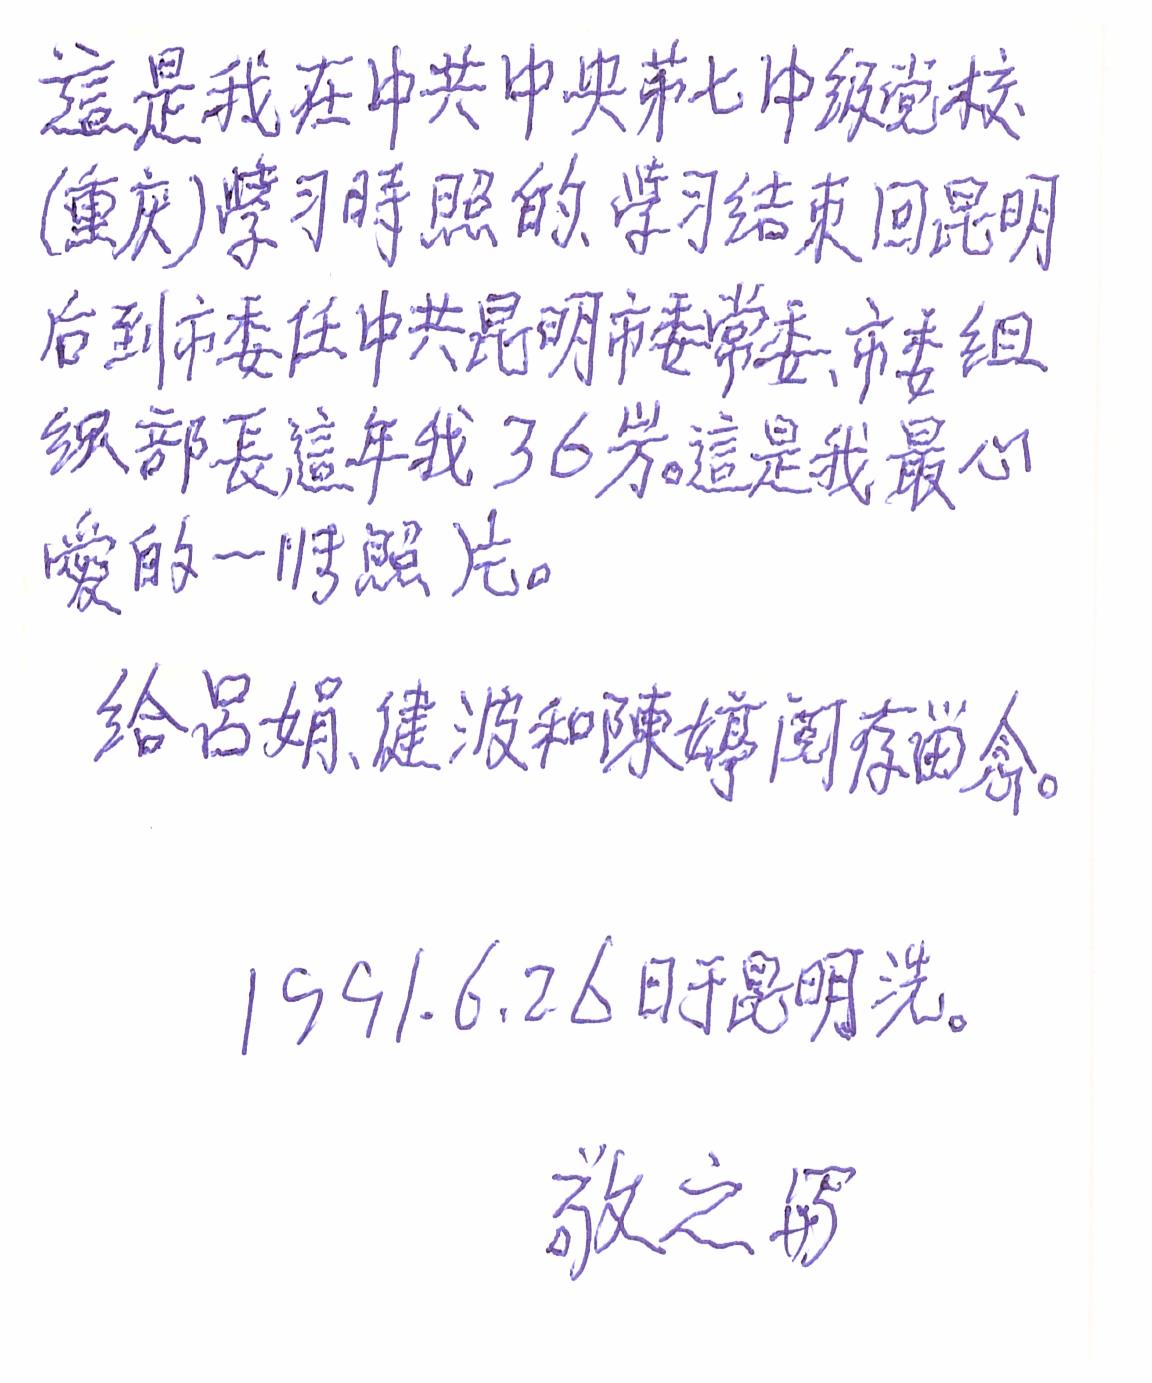 這是我在中共中央第七中级党校
(重庆)學习時照的、学习结束回昆明
后到市委任中共昆明市委常委、市委组
织部長,這年我36岁。這是我最心
愛的一张照片。
给吕娟、健波和陳婷閱存留念。
1991.6.26日于昆明洗。
敬之